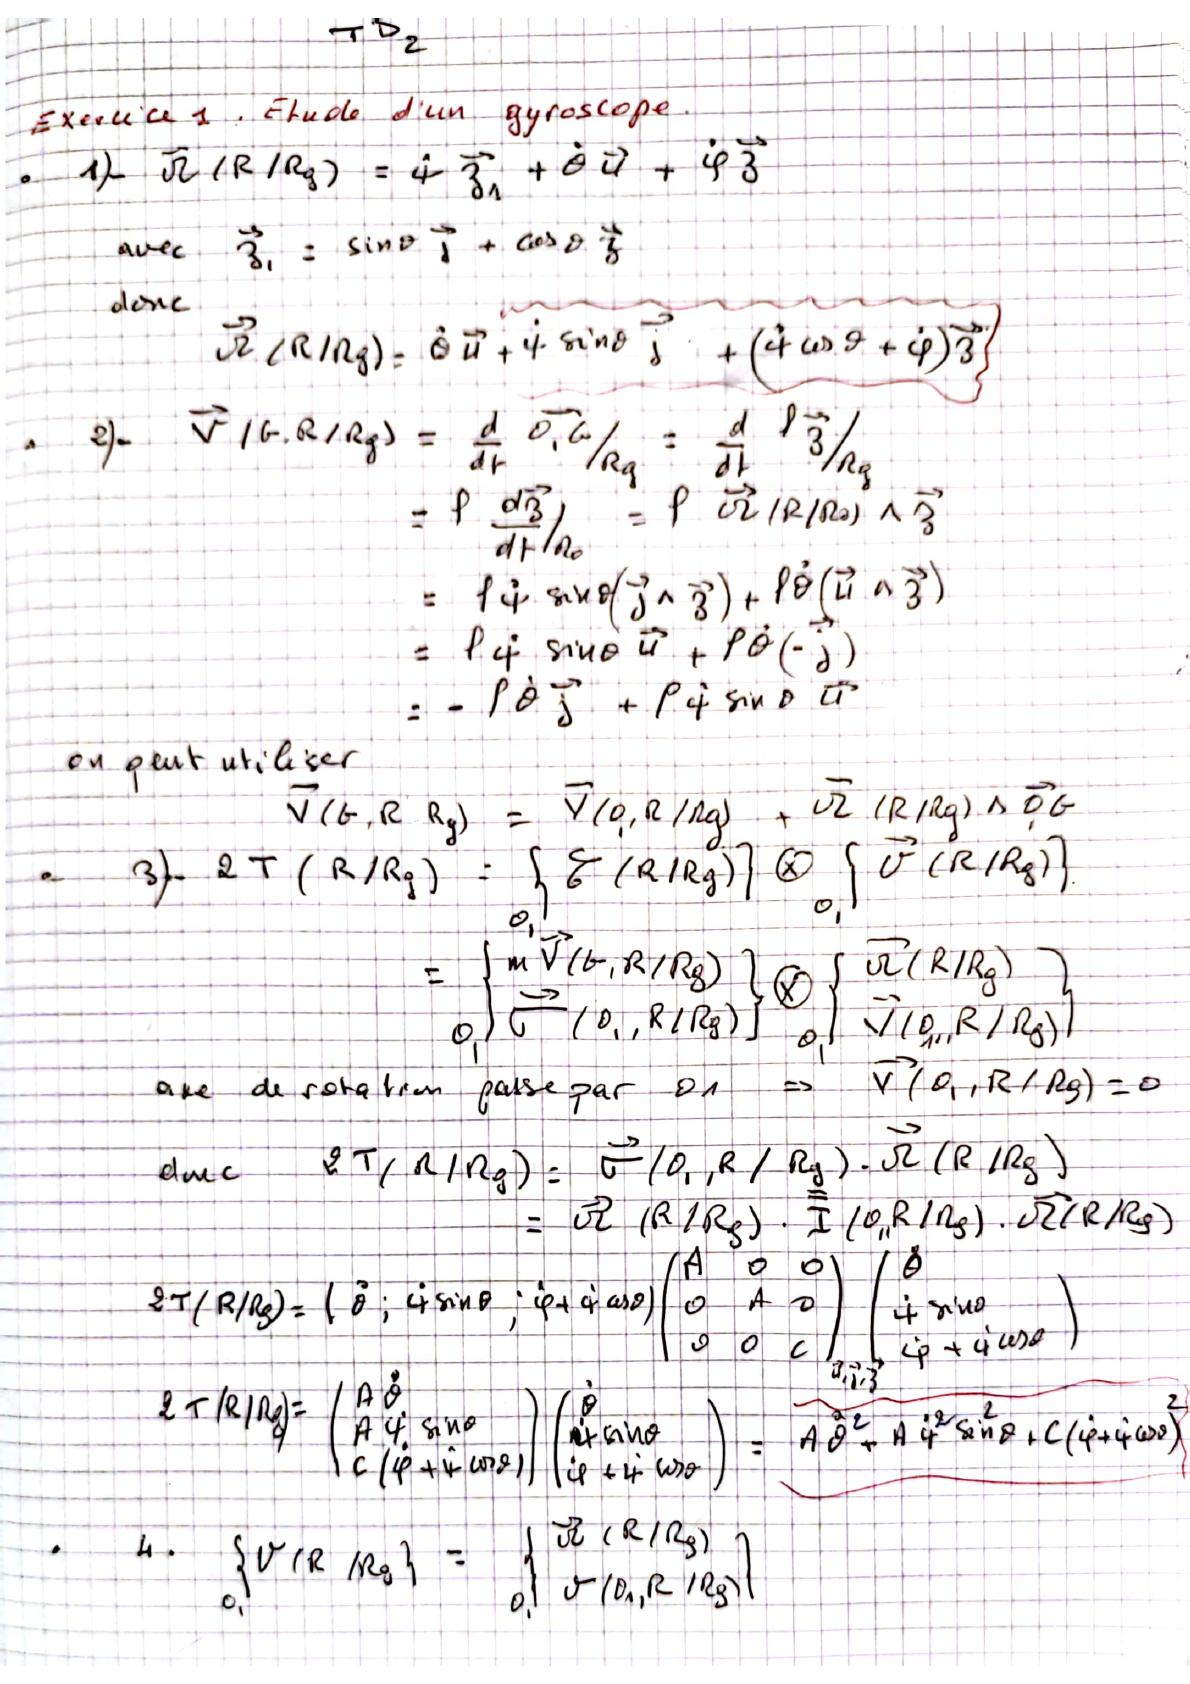 TD2
Exercice 1. Etude d'un gyroscope.
• 1)- Ω⃗ (R/Rg) = ψ̇ z⃗₁ + θ̇ u⃗ + φ̇ z⃗
avec z⃗₁ = sinθ j⃗ + cosθ z⃗
donc
Ω⃗ (R/Rg) = θ̇ u⃗ + ψ̇ sinθ j⃗ + (ψ̇ cosθ + φ̇) z⃗
• 2)- V⃗ (G,R/Rg) = d/dt O₁G⃗ /Rg = d/dt l z⃗ /Rg
= l dz⃗/dt /R₀ = l Ω⃗ (R/R₀) ∧ z⃗
= l ψ̇ sinθ (j⃗ ∧ z⃗) + l θ̇ (u⃗ ∧ z⃗)
= l ψ̇ sinθ u⃗ + l θ̇ (-j⃗)
= - l θ̇ j⃗ + l ψ̇ sinθ u⃗
on peut utiliser
V⃗ (G,R Rg) = V⃗ (O₁R/Rg) + Ω⃗ (R/Rg) ∧ O₁G⃗
• 3)- 2T (R/Rg) = O₁{ 𝒞 (R/Rg)} ⊗ O₁{ V⃗ (R/Rg)}
= O₁{ mV⃗ (G,R/Rg) } ⊗ O₁{ Ω⃗ (R/Rg) }
σ⃗ (O₁,R/Rg) V⃗ (O₁,R/Rg)
axe de rotation passe par O1 ⇒ V⃗ (O₁,R/Rg) = 0
donc 2T(R/Rg) = σ⃗ (O₁,R/Rg) · Ω⃗ (R/Rg)
= Ω⃗ (R/Rg) · I̿ (O₁,R/Rg) · Ω⃗ (R/Rg)
2T(R/Rg) = (θ̇ ; ψ̇ sinθ ; φ̇ + ψ̇ cosθ) (A 0 0 (θ̇
0 A 0 ψ̇ sinθ
0 0 C) u⃗,j⃗,z⃗ φ̇ + ψ̇ cosθ)
2T(R/Rg) = (A θ̇ (θ̇
A ψ̇ sinθ ψ̇ sinθ = A θ̇² + A ψ̇² sin²θ + C(φ̇ + ψ̇ cosθ)²
C(φ̇ + ψ̇ cosθ)) φ̇ + ψ̇ cosθ)
• 4. O₁{ V(R/Rg } = O₁{ Ω⃗ (R/Rg)
v (O₁,R/Rg) }